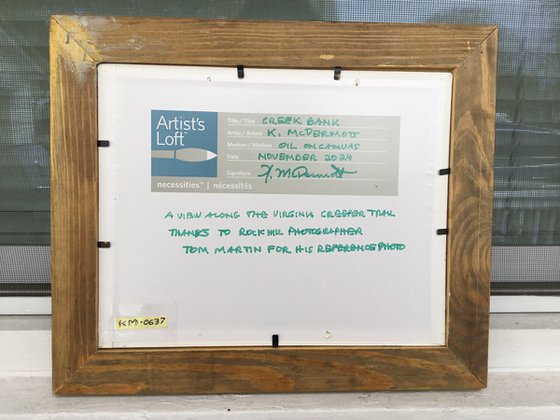 Artist's Loft™
necessities™ | nécessités
Title / Titre CREEK BANK
Artist / Artiste K. McDERMOTT
Medium / Médium OIL ON CANVAS
Date NOVEMBER 2024
Signature K. McDermott
A VIEW ALONG THE VIRGINIA CREEPER TRAIL
THANKS TO ROCK HILL PHOTOGRAPHER
TOM MARTIN FOR HIS REFERENCE PHOTO
KM-0637